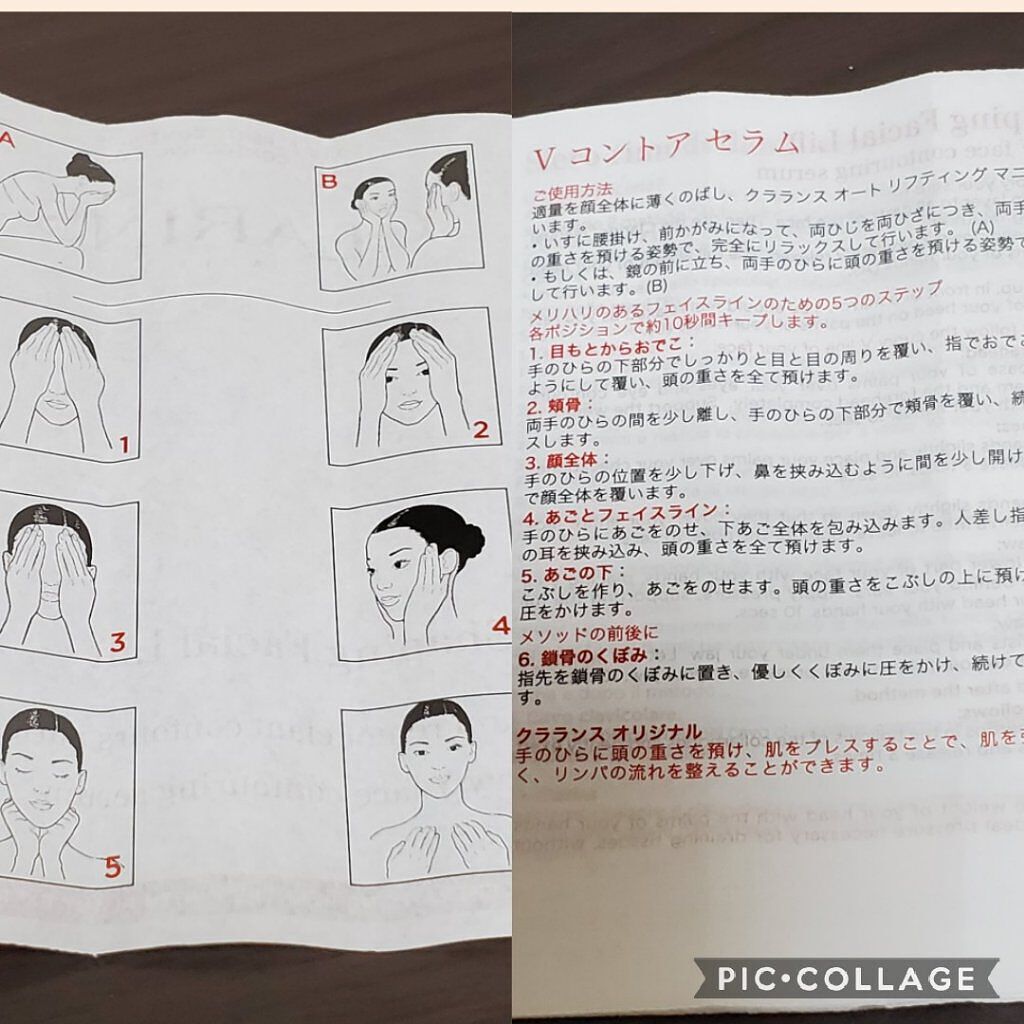 A
B
1
2
3
4
5
V コントア セラム
ご使用方法
適量を顔全体に薄くのばし、クラランス オート リフティング マニ
います。
・いすに腰掛け、前かがみになって、両ひじを両ひざにつき、両手
の重さを預ける姿勢で、完全にリラックスして行います。(A)
・もしくは、鏡の前に立ち、両手のひらに頭の重さを預ける姿勢で
して行います。(B)
メリハリのあるフェイスラインのための5つのステップ
各ポジションで約10秒間キープします。
1. 目もとからおでこ：
手のひらの下部分でしっかりと目と目の周りを覆い、指でおでこ
ようにして覆い、頭の重さを全て預けます。
2. 頬骨：
両手のひらの間を少し離し、手のひらの下部分で頬骨を覆い、続
スします。
3. 顔全体：
手のひらの位置を少し下げ、鼻を挟み込むように間を少し開け
で顔全体を覆います。
4. あごとフェイスライン：
手のひらにあごをのせ、下あご全体を包み込みます。人差し指
の耳を挟み込み、頭の重さを全て預けます。
5. あごの下：
こぶしを作り、あごをのせます。頭の重さをこぶしの上に預け
圧をかけます。
メソッドの前後に
6. 鎖骨のくぼみ：
指先を鎖骨のくぼみに置き、優しくくぼみに圧をかけ、続けて
す。
クラランス オリジナル
手のひらに頭の重さを預け、肌をプレスすることで、肌を
く、リンパの流れを整えることができます。
PIC•COLLAGE